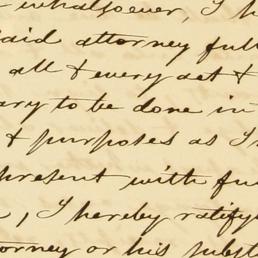 whatsoever, I h
said attorney full
all & every act &
ary to be done in
& purposes as I
present with full
, I hereby ratify
torney or his subst